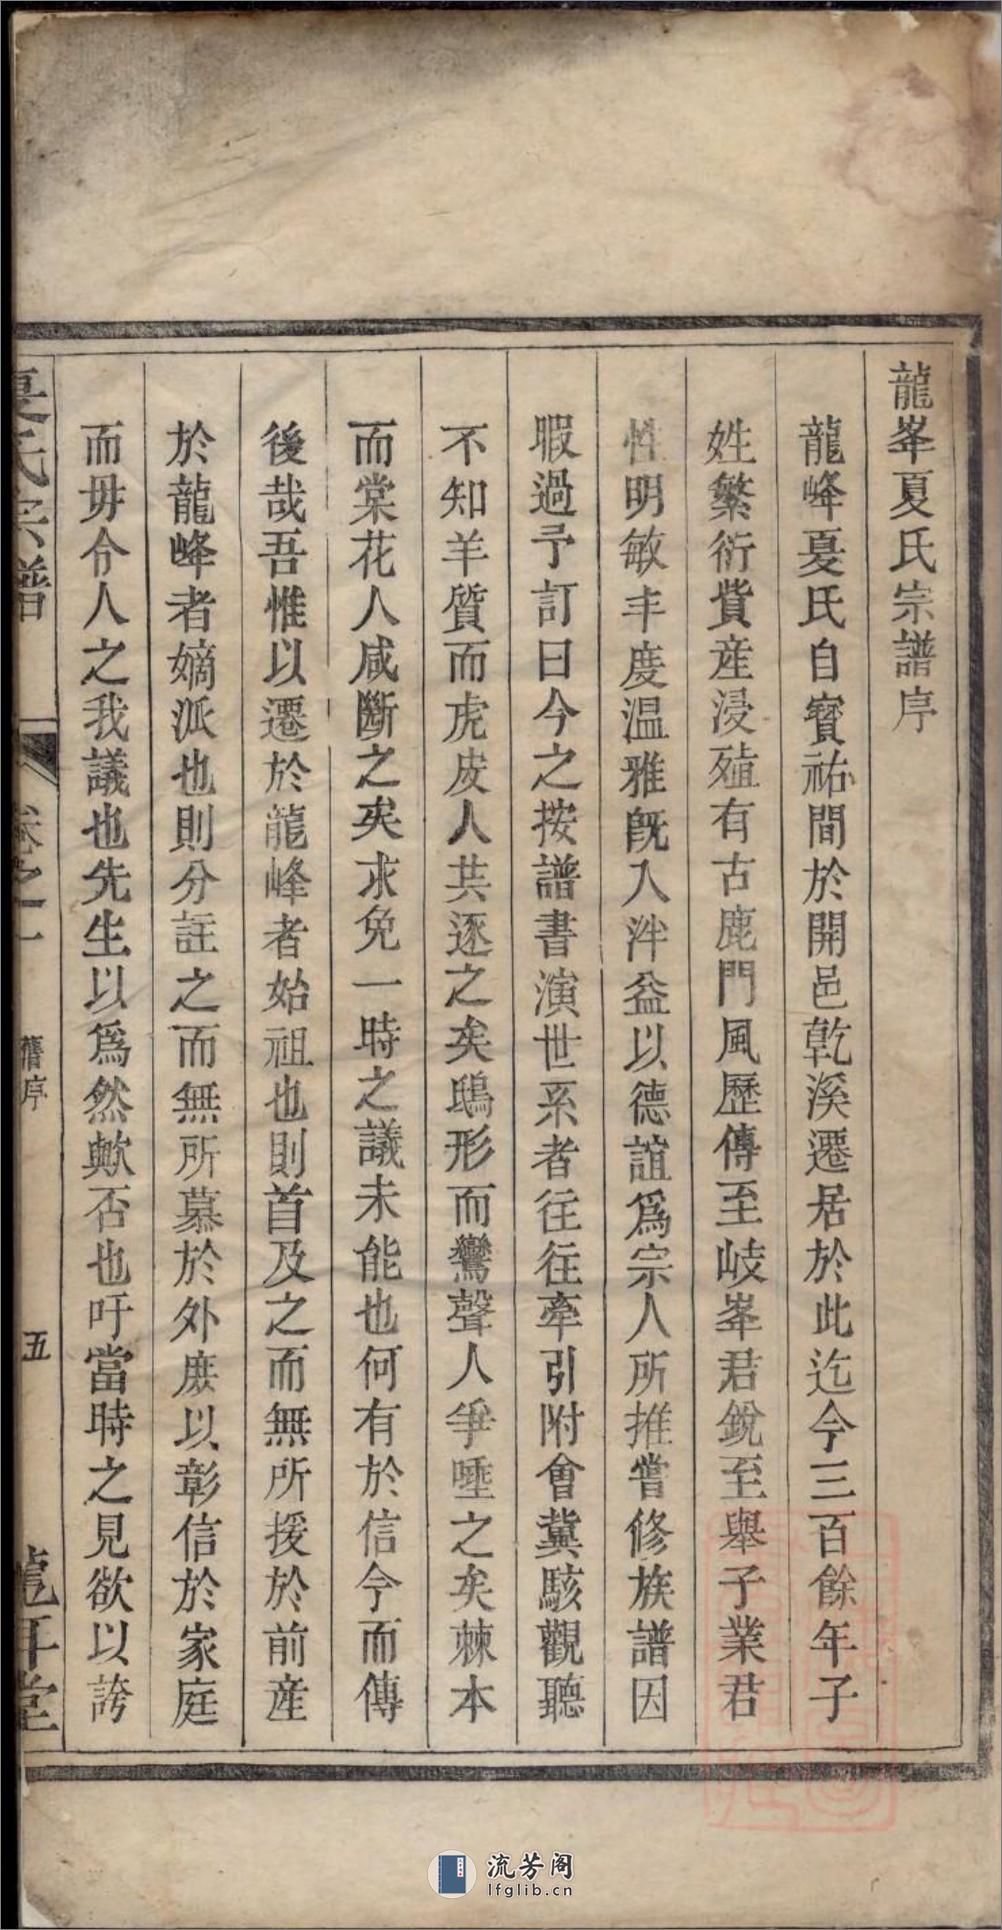 龍峯夏氏宗譜序
龍峰夏氏自寳祐間於開邑乾溪遷居於此迄今三百餘年子
姓繁衍貲産浸殖有古鹿門風歷傳至岐峯君銳至舉子業君
性明敏丰度温雅旣入泮益以德誼爲宗人所推嘗修族譜因
暇過予訂曰今之按譜書演世系者往往牽引附會冀駭觀聽
不知羊質而虎皮人共逐之矣鴟形而鸞聲人爭唾之矣棘本
而棠花人咸斷之矣求免一時之議未能也何有於信今而傳
後哉吾惟以遷於龍峰者始祖也則首及之而無所援於前産
於龍峰者嫡派也則分註之而無所慕於外庶以彰信於家庭
而毋令人之我議也先生以爲然歟否也吁當時之見欲以誇
夏氏宗譜 卷之一 舊序 五 龍耳堂
流芳阁
lfglib.cn